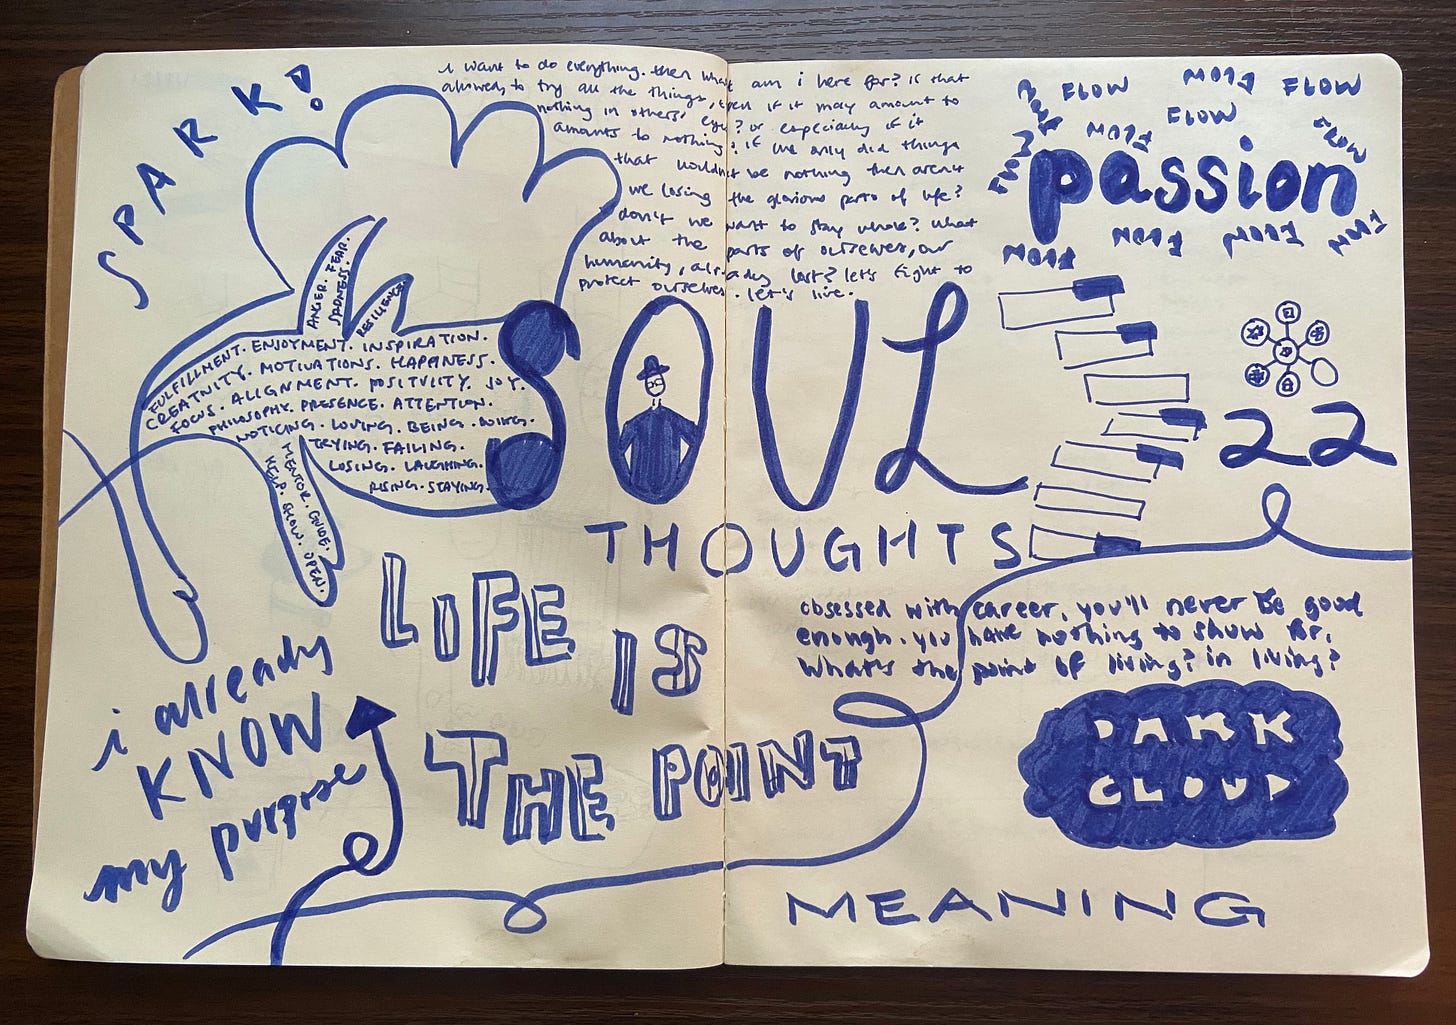 SPARK!
i want to do everything. then what am i here for? is that
allowed, to try all the things, even if it may amount to
nothing in others' eyes? or especially if it
amounts to nothing? if we only did things
that wouldn't be nothing then aren't
we losing the glorious parts of life?
don't we want to stay whole? what
about the parts of ourselves, our
humanity, already lost? let's fight to
protect ourselves. let's live.
FLOW FLOW
FLOW
FLOW
FLOW
passion
ANGER. FEAR.
SADNESS.
RESILIENCE
FULFILLMENT. ENJOYMENT. INSPIRATION.
CREATIVITY. MOTIVATIONS. HAPPINESS.
FOCUS. ALIGNMENT. POSITIVITY. JOY.
PHILOSOPHY. PRESENCE. ATTENTION.
NOTICING. LOVING. BEING. DOING.
TRYING. FAILING.
LOSING. LAUGHING.
RISING. STAYING.
MENTOR. GUIDE.
HELP. GROW. OPEN.
SOUL
22
THOUGHTS
LIFE IS
THE POINT
i already
KNOW
my purpose
obsessed with career, you'll never be good
enough. you have nothing to show for.
what's the point of living? in living?
DARK
CLOUD
MEANING